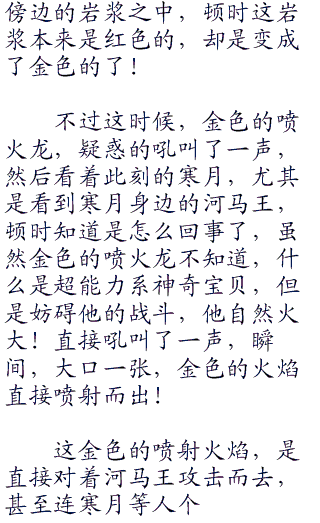 傍边的岩浆之中，顿时这岩
浆本来是红色的，却是变成
了金色的了！
不过这时候，金色的喷
火龙，疑惑的吼叫了一声，
然后看着此刻的寒月，尤其
是看到寒月身边的河马王，
顿时知道是怎么回事了，虽
然金色的喷火龙不知道，什
么是超能力系神奇宝贝，但
是妨碍他的战斗，他自然火
大！直接吼叫了一声，瞬
间，大口一张，金色的火焰
直接喷射而出！
这金色的喷射火焰，是
直接对着河马王攻击而去，
甚至连寒月等人个